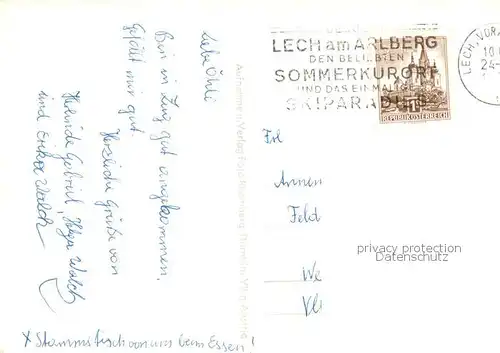 Liebe Öhli
Bin in Zug gut angekommen.
Gefällt mir gut.
Herzliche Grüße von
Helmide Gabriel, Helga Walch
und Erika Walch
x Stammtisch von uns beim Essen!
LECH am ARLBERG
DEN BELIEBTEN
SOMMERKURORT
UND DAS EINMALIGE
SKIPARADIES
REPUBLIK ÖSTERREICH
LECH, VOR
10
24-
Frl
Annem
Feld
We
Vl
privacy protection
Datenschutz